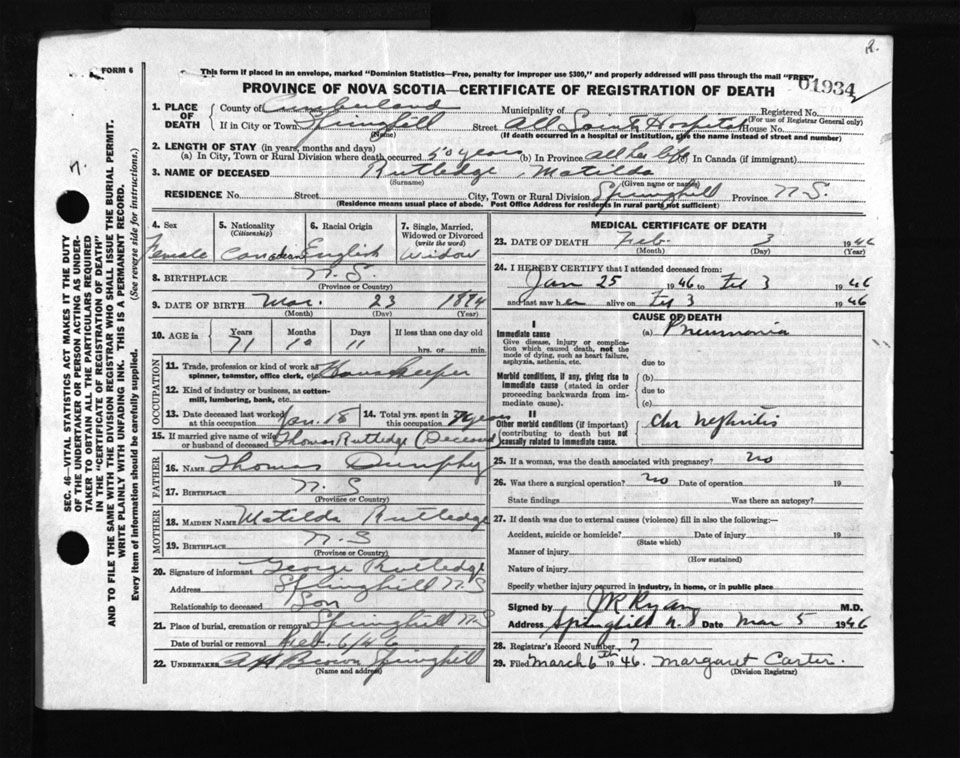 R.
FORM 6
This form if placed in an envelope, marked "Dominion Statistics—Free, penalty for improper use $300," and properly addressed will pass through the mail "FREE"
01934
PROVINCE OF NOVA SCOTIA—CERTIFICATE OF REGISTRATION OF DEATH
1. PLACE OF DEATH County of Cumberland Municipality of Registered No. (For use of Registrar General only)
If in City or Town Springhill (Name) Street All Saints Hospital House No.
(If death occurred in a hospital or institution, give the name instead of street and number)
2. LENGTH OF STAY (in years, months and days)
(a) In City, Town or Rural Division where death occurred 50 years (b) In Province all her life In Canada (if immigrant)
3. NAME OF DECEASED Rutledge, Matilda
(Surname) (Given name or names)
RESIDENCE No. Street City, Town or Rural Division Springhill Province N.S.
(Residence means usual place of abode. Post Office Address for residents in rural parts not sufficient)
4. Sex 5. Nationality (Citizenship) 6. Racial Origin 7. Single, Married, Widowed or Divorced (write the word)
Female Canadian English Widow
8. BIRTHPLACE N.S.
(Province or Country)
9. DATE OF BIRTH Mar. 23 1874
(Month) (Day) (Year)
10. AGE in Years Months Days If less than one day old
71 10 11 hrs. or min.
OCCUPATION
11. Trade, profession or kind of work as spinner, teamster, office clerk, etc. House Keeper
12. Kind of industry or business, as cotton-mill, lumbering, bank, etc.
13. Date deceased last worked at this occupation Jan. 18 14. Total yrs. spent in this occupation years
15. If married give name of wife or husband of deceased Thomas Rutledge (Deceased)
FATHER
16. NAME Thomas Dunphy
17. BIRTHPLACE N.S
(Province or Country)
MOTHER
18. MAIDEN NAME Matilda Rutledge
19. BIRTHPLACE N.S
(Province or Country)
20. Signature of informant George Rutledge
Address Springhill N S
Relationship to deceased Son
21. Place of burial, cremation or removal Springhill N S
Date of burial or removal Feb. 6/46
22. UNDERTAKER A H Brown Springhill
(Name and address)
MEDICAL CERTIFICATE OF DEATH
23. DATE OF DEATH Feb. 3 1946
(Month) (Day) (Year)
24. I HEREBY CERTIFY that I attended deceased from:
Jan 25 1946 to Feb 3 1946
and last saw her alive on Feb 3 1946
CAUSE OF DEATH
I
Immediate cause (a) Pneumonia
Give disease, injury or complication which caused death, not the mode of dying, such as heart failure, asphyxia, asthenia, etc.
due to
Morbid conditions, if any, giving rise to immediate cause (stated in order proceeding backwards from immediate cause).
(b)
due to
(c)
II
Other morbid conditions (if important) contributing to death but not causally related to immediate cause.
Chr Nephritis
25. If a woman, was the death associated with pregnancy? no
26. Was there a surgical operation? no Date of operation 19
State findings Was there an autopsy?
27. If death was due to external causes (violence) fill in also the following:—
Accident, suicide or homicide? Date of injury 19
(State which)
Manner of injury
(How sustained)
Nature of injury
Specify whether injury occurred in industry, in home, or in public place
Signed by J R Ryan M.D.
Address Springhill N.S Date Mar 5 1946
28. Registrar's Record Number 7
29. Filed March 6th 1946. Margaret Carter.
(Division Registrar)
SEC. 46—VITAL STATISTICS ACT MAKES IT THE DUTY
OF THE UNDERTAKER OR PERSON ACTING AS UNDER-
TAKER TO OBTAIN ALL THE PARTICULARS REQUIRED
IN THE "CERTIFICATE OF REGISTRATION OF DEATH"
AND TO FILE THE SAME WITH THE DIVISION REGISTRAR WHO SHALL ISSUE THE BURIAL PERMIT.
WRITE PLAINLY WITH UNFADING INK. THIS IS A PERMANENT RECORD.
Every item of information should be carefully supplied. (See reverse side for instructions.)